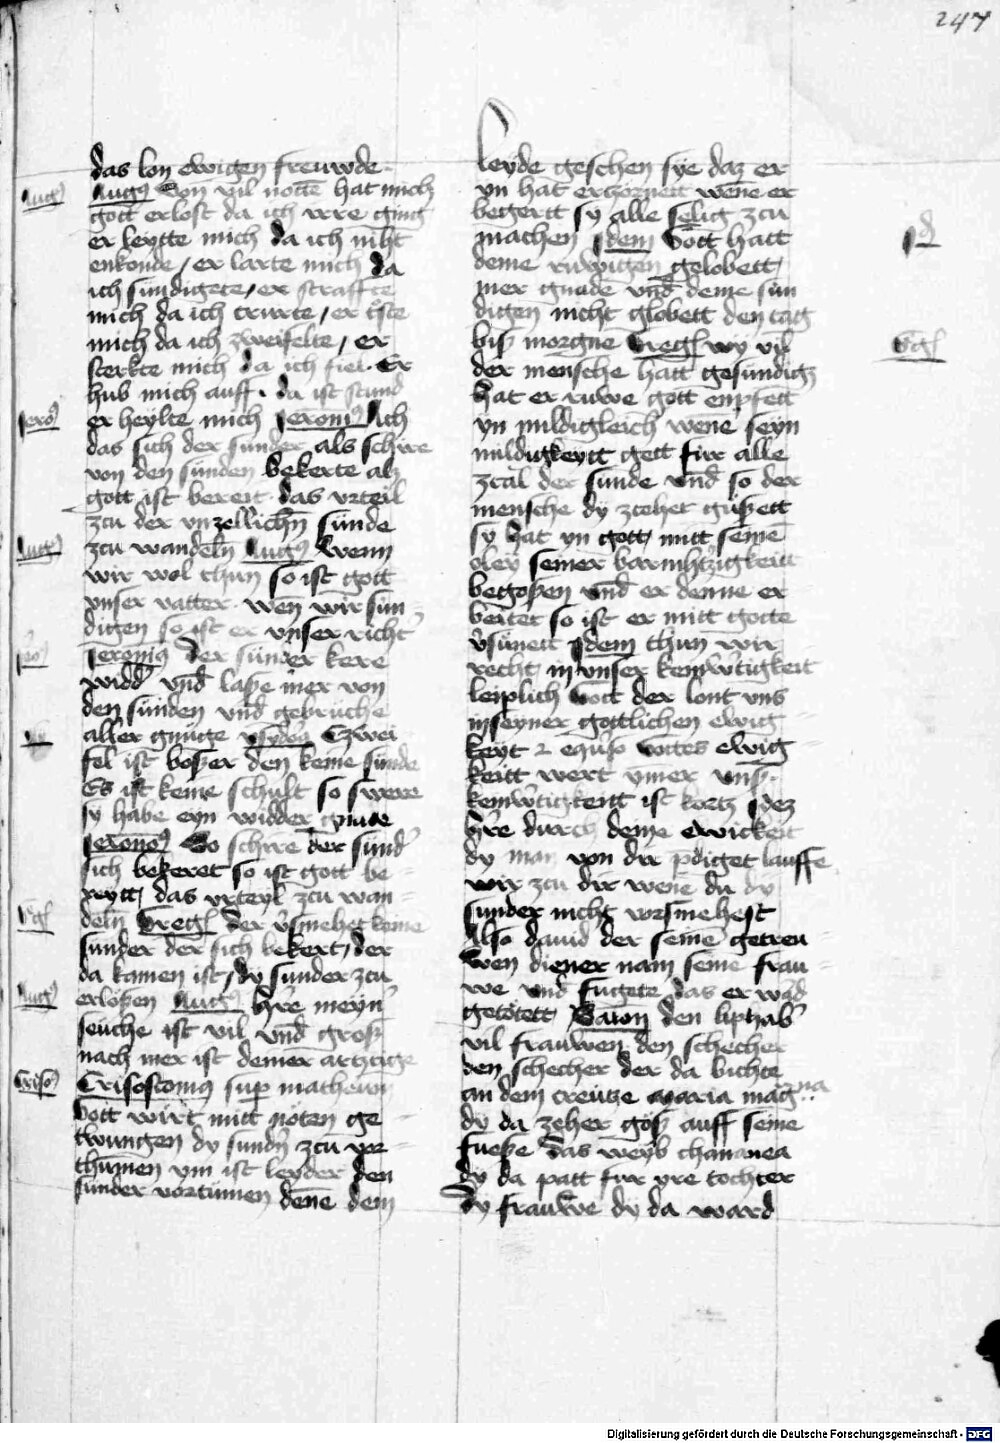 247
das lon ewigen freuwde.
Aug9 Aug9 Von vil notē hat mich
gott erlost da ich irre ging
er leytte mich da ich niht
enkonde / er larte mich da
ich sundigete / er straffte
mich da ich trurte / er troste
mich da ich zweifelte / er
sterkte mich da ich fiel. Er
hub mich auff. da ist stund
Jero9 er heylte mich Jeronim9 Ich
das sich der sunder als schire
von den sunden bekerte als
gott ist bereit. das urteil
zcu der unzellichn̄ sunde
Aug9 zcu wandeln̄ Aug9 Wenn
wir wol thun so ist gott
unser vatter. wen wir sun
digen so ist er unser richt'
Jeronim9 Der sunder kere
widd' und laße mer von
den sunden und gebruche
aller gnuge ysydor9 Czwei
fel ist boßer den keine sunde
Es ist keine schult so swere
sy habe eyn widder gnade
Jerono9 So schire der sund'
sich bekeret so ist gott be
reytt das urteyl zcu wan
Greg deln̄ Greg Der v'smehet keine
sunder der sich bekert / der
da kamen ist / dy sunder zcu
Aug9 erlößen Aug9 h're meyn'
seuche ist vil und groß
nach mer ist deiner artztige
Criso9 Crisostomus sup matheum
Gott wirt mitt noten ge
twungen dy sund' zcu vor
thumen um ist leyder den
sunder vortumen denne dem
leyde geschen sye daz er
yn hat erzornett wene er
begertt sy alle selig zcu
machen Idem Gott hatt Id
deme ruwigen gelobett
mer gnade und deme sun
digen nicht globett den tag
biß morgne Greg wy vil Greg
der mensche hatt gesundigt
hat er ruwe gott enpfett
yn mildigleich wene seyn
mildigkeytt gett fur alle
zcal der sunde und so der
mensche dy zceher gußett
sy hat yn gott mitt seinē
oley seiner barmh'tzigkeitt
begoßen und er denne er
beitet so ist er mitt gotte
v'sunett Idem thun wir
recht in unser kenw'tigkeit
leiplich Gott der lont uns
in seyner gottlichen ewig
keyt Gottes ewig
keitt wert ymer unß
kenw'tigkeitt ist kortz
h're durch deine ewickeit
dy man von dir p'diget lauffe
wir zcu dir wene du dy
sunder nicht vorsmehest
Also dauid der seinē getreu
wen diener nam seine frau
we und fugete das er w'd
getötett den liphab'
vil frauwen den schecher
den schecher der da bichte
an dem creutze Maria mag
na
dy da zeher göß auff seine
fueße Das weyb chananea
dy da patt fur yre tochter
dy frauwe dy da ward
Digitalisierung gefördert durch die Deutsche Forschungsgemeinschaft - DFG